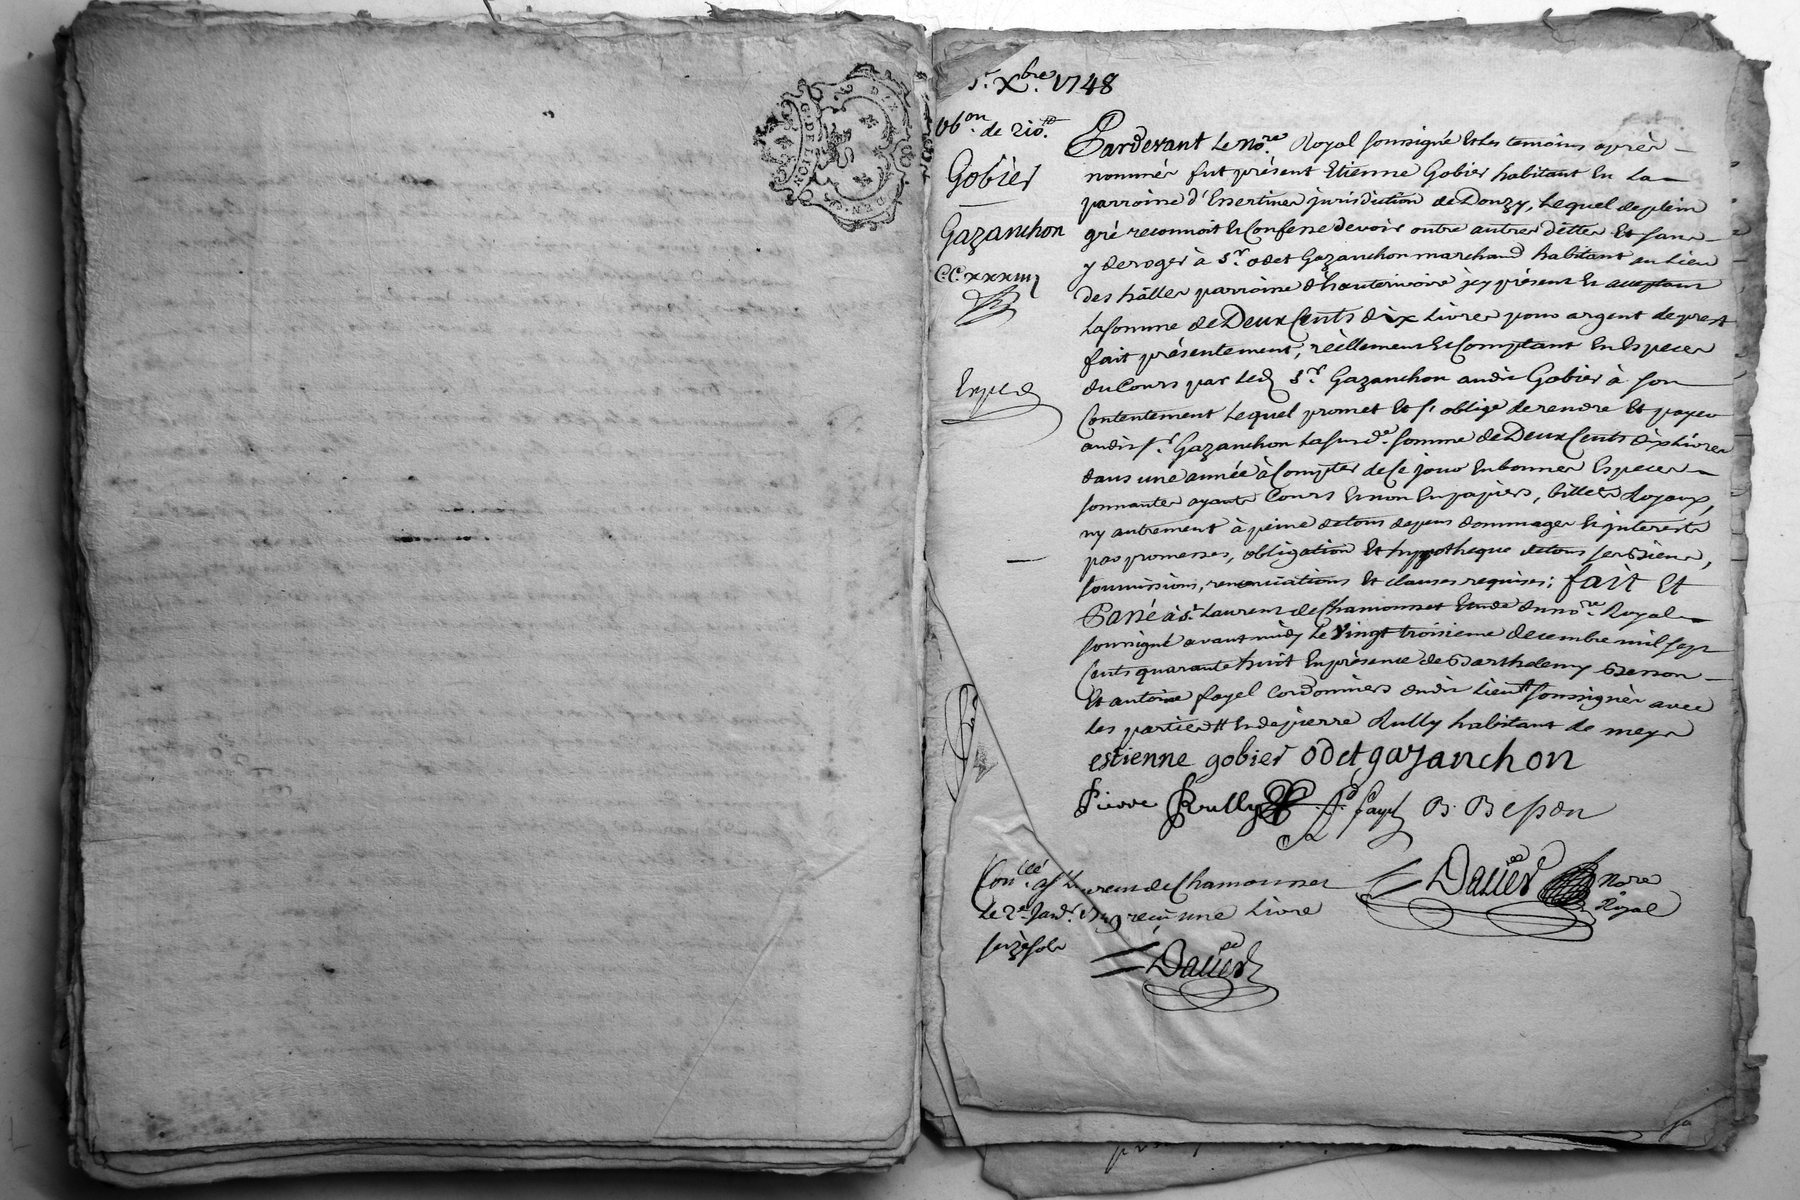 GDE·LION
DIX
DEN·
Xbre. 1748
obon. de 210tt
Gobier
Gazanchon
CCxxxiii
Expéd
Pardevant Le Nore. Royal soussigné Et les temoins après
nommés fut présent Etienne Gobier habitant En La
parroisse d'Essertines jurisdiction de Donzy, Lequel de plein
gré reconnoit Et Confesse devoir outre autres dettes Et sans
y deroger à Sr. odet Gazanchon marchand habitant au Lieu
des hâlles parroisse d'hauterivoire jcy présent Et acceptant
La somme de Deux Cents dix Livres pour argent de prest
fait présentement, réellement Et Comptant En Especes
du Cours par Led Sr. Gazanchon audit Gobier à son
Contentement Lequel promet Et s'oblige de rendre Et payer
audit Sr. Gazanchon La susde. somme de Deux Cents dix Livres
dans une année à Compter de Ce jour En bonnes Especes
sonnantes ayants Cours Et non En papiers, billets Royaux,
ny autrement à peine de tous depens dommages Et interests
par promesses, obligation Et hyppotheque de tous ses Biens,
soumissions, renonciations Et clauses requises; fait Et
Passé à St. Laurent de Chamousset Etude du nore. Royal
soussigné avant midy Le Vingt troisieme decembre mil sept
Cents quarante huit En présence de Barthelemy Besson
Et antoine fayel Cordonniers dudit Lieu soussignés avec
les parties Et de pierre Rully habitant de meys
estienne gobier odet gazanchon
Pierre Rully fayel B. Besson
Conllé. a St Laurent de Chamousset
Le 2e Janvr. 1749 reçu une Livre
seize sols
Dallier Nore
Royal
Dallier